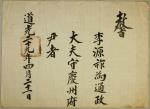 敎旨
李源祚爲通政
大夫守慶州府
尹者
道光三十年四月二十一日